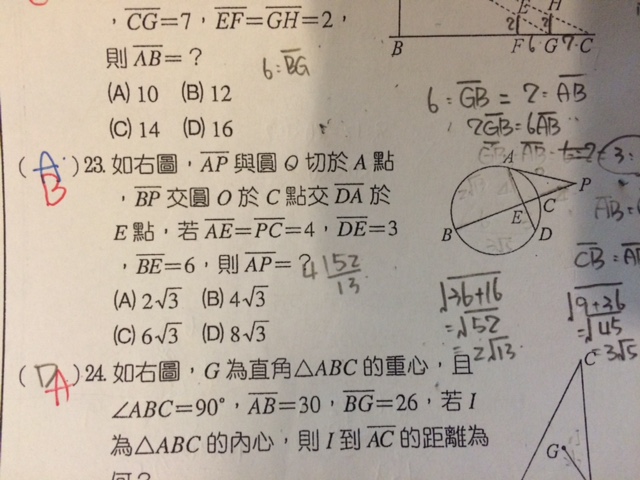 ，CG=7，EF=GH=2，
則AB=？
6:BG
(A) 10 (B) 12
(C) 14 (D) 16
E H
2 2
B F 6 G 7 C
6:GB = 2:AB
2GB=6AB
(A B)23. 如右圖，AP與圓O切於A點
，BP交圓O於C點交DA於
E點，若AE=PC=4，DE=3
，BE=6，則AP=？
4 152
13
(A) 2√3 (B) 4√3
(C) 6√3 (D) 8√3
A P C E B D
√36+16
=√52
=2√13
CB=
√9+36
=√45
=3√5
(D A)24. 如右圖，G為直角△ABC的重心，且
∠ABC=90°，AB=30，BG=26，若I
為△ABC的內心，則I到AC的距離為
何？
C
G